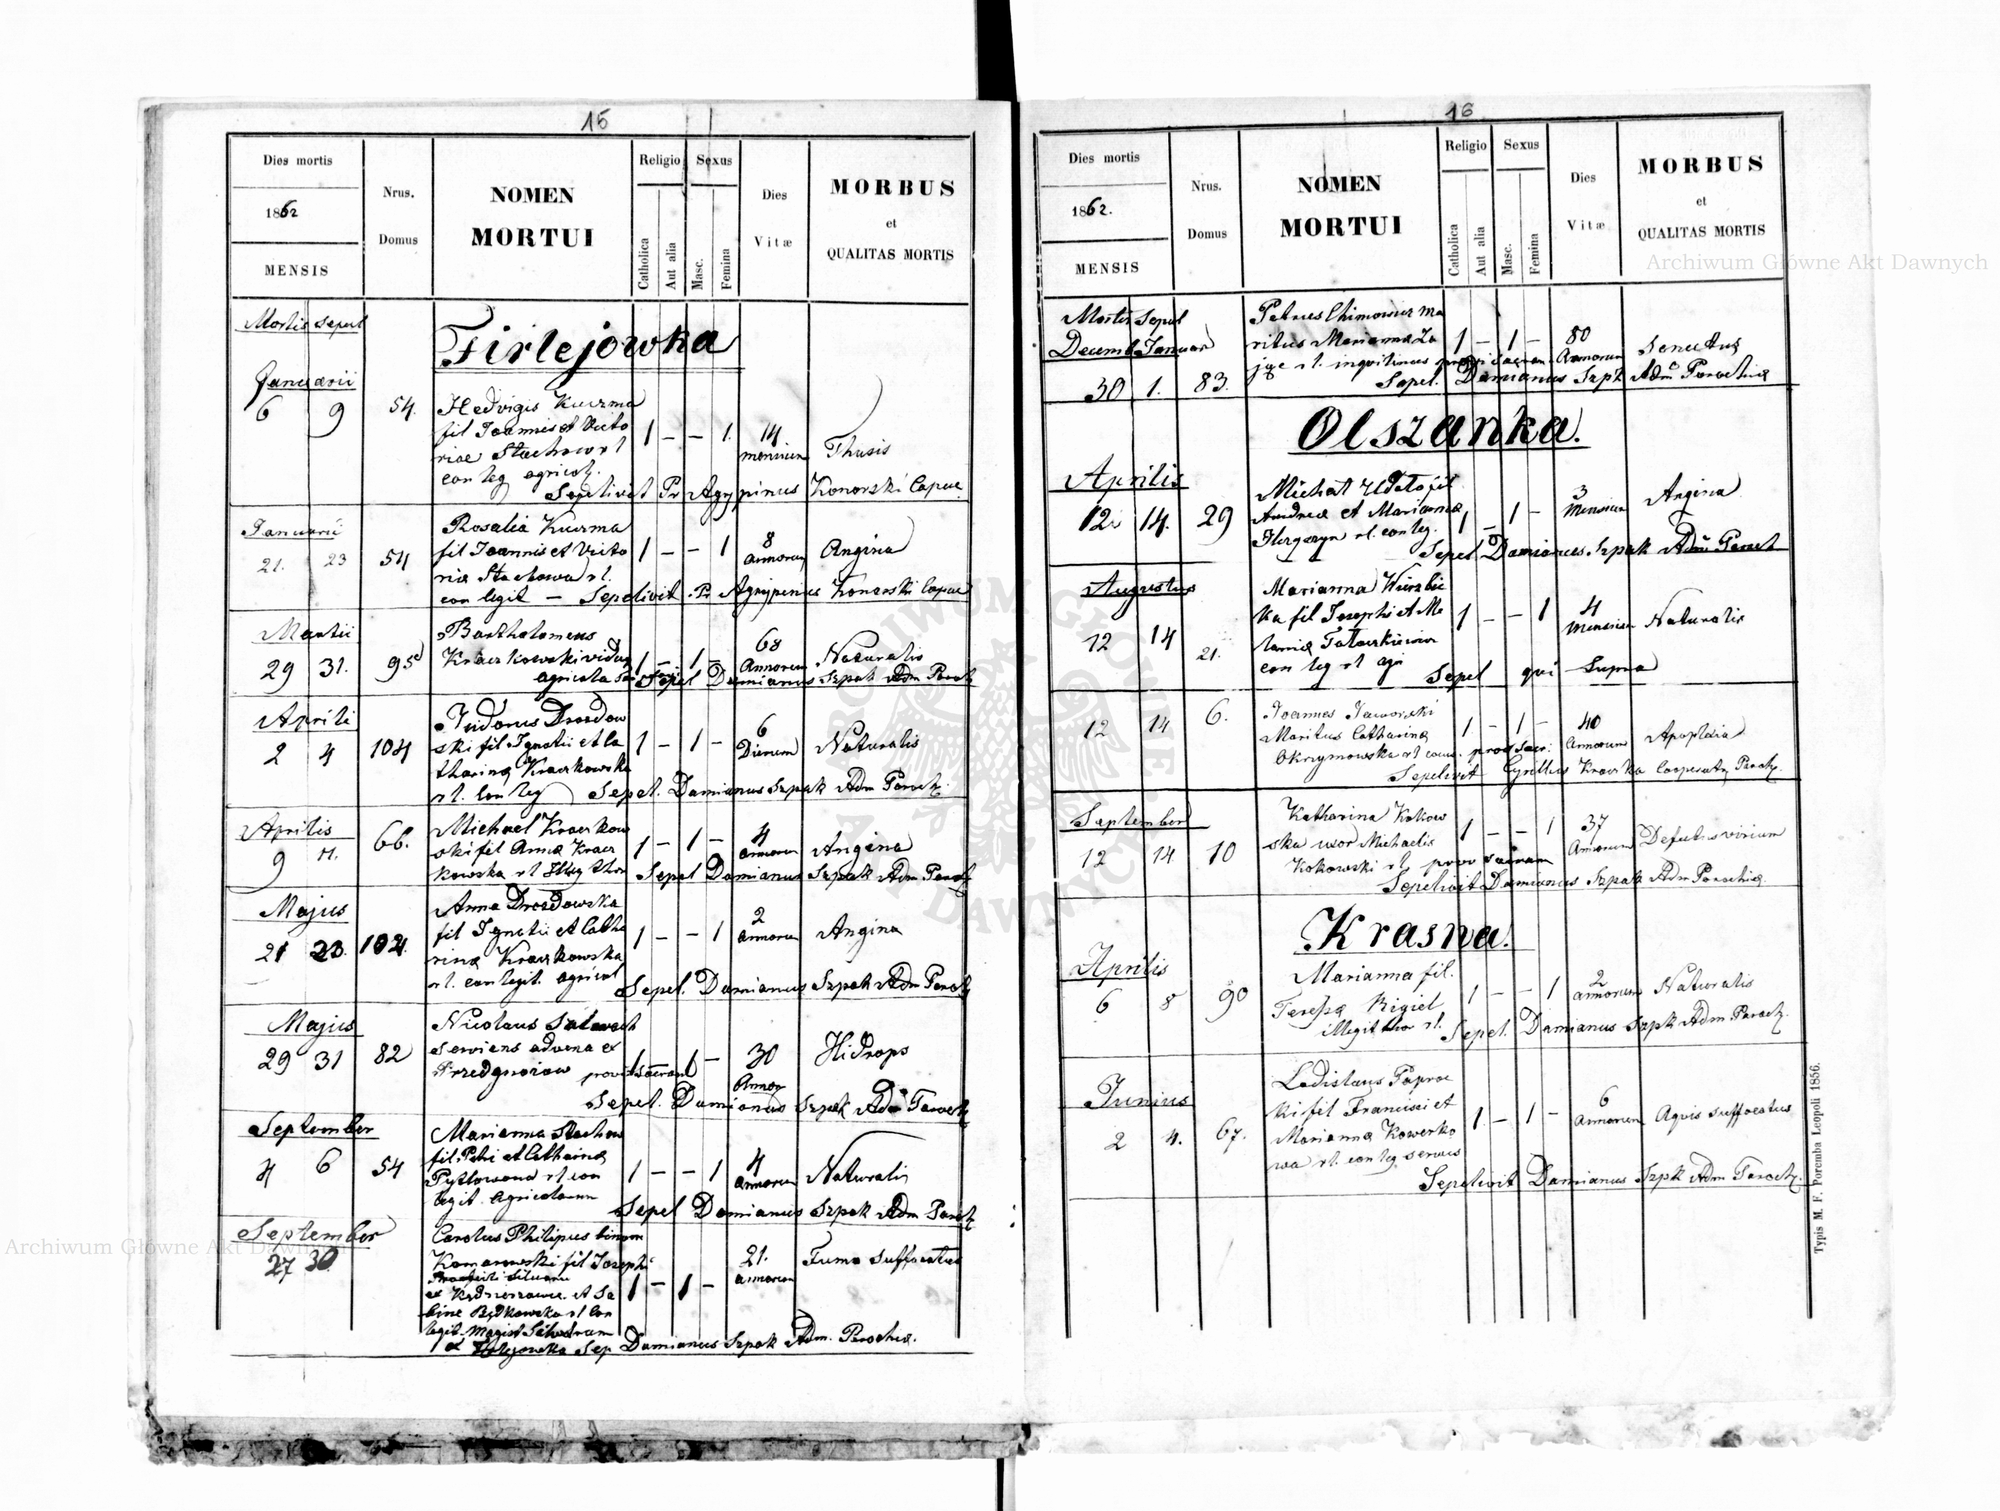 15
Dies mortis
1862
MENSIS
Nrus.
Domus
NOMEN
MORTUI
Religio
Catholica
Aut alia
Sexus
Masc.
Femina
Dies
Vitæ
MORBUS
et
QUALITAS MORTIS
Mortis Sepul
Firlejowka
Januarii
6 9 54. Hedvigis Kuczma
fil Joannis et Victo
riae Stachow rl
con leg agricol.
1 – – 1. 14 mensium
Thisis
Sepelivit Pr Agrypinus Konarski Capuc.
Januarii
21. 23 54 Rosalia Kuczma
fil Joannis et Victo
ria Stachowa rl.
con legit –
1 – – 1 8 annorum Angina
Sepelivit Pr Agrypinus Konarski Capuc
Martii
29 31. 95 Bartholomeus
Kraczkowski viduus
agricola
1 – 1 – 68 Annorum Naturalis
Sepel Damianus Szpak Adm Paroch
Aprili
2 4 104 Isidorus Drozdow
ski fil Ignatii et Ca
tharina Kraczkowska
rl. con leg
1 – 1 – 6 Dierum Naturalis
Sepel. Damianus Szpak Adm Paroch.
Aprilis
9 11. 66. Michael Kraczkow
ski fil Anna Kracz
kowska rl
1 – 1 – 4 annorum Angina
Sepel Damianus Szpak Adm Paroch
Majus
21 23. 104 Anna Drozdowska
fil Ignatii et Catha
rina Kraczkowska
rl. con legit. agricol
1 – – 1 2 annorum Angina
Sepel. Damianus Szpak Adm Paroch
Majus
29 31 82 Nicolaus
serviens advena ex
1 – 1 – 30 Annor Hidrops
Sepel. Damianus Szpak Adm Paroch
September
4 6 54 Marianna Stachow
fil. Petri et Catharina
rl con
legit. Agricolarum
1 – – 1 4 annorum Naturalis
Sepel Damianus Szpak Adm Paroch
September
27 30 Carolus Philipus binom
Komarowski fil Josephi
et Sa
bine rl Con
legit. Magist
1 – 1 – 21. annorum Fumo suffocatus
Sep Damianus Szpak Adm. Parochia.
16
Dies mortis
1862.
MENSIS
Nrus.
Domus
NOMEN
MORTUI
Religio
Catholica
Aut alia
Sexus
Masc.
Femina
Dies
Vitæ
MORBUS
et
QUALITAS MORTIS
Mortis Sepul
Decemb Januar
30 1. 83. Petrus Chimowicz ma
ritus Marianna Za
jge rl. inquilinus
1 – 1 – 80 Annorum Senectus
Sepel. Damianus Szpk Adm Parochia
Olszanka.
Aprilis
12 14. 29 Michał fil
Andrea et Marianna
rl. con leg.
1 – 1 – 3 Mensium Angina
Sepel Damianus Szpak Adm Paroch
Augustus
12 14 21. Marianna Wierzbic
ka fil Josephi et Me
lania
con leg rl agr
1 – – 1 4 Mensium Naturalis
Sepel qui Supra
12 14 6. Joannes Jaworski
Maritus Catharina
Okrzymowska rl
1. – 1 – 40 Annorum Apoplexia
Sepelivit Cyrillus Cooperator Paroch.
September
12 14 10 Katharina Kokow
ska uxor Michaelis
Kokowski rl. prov sacram
1 – – 1 37 Annorum Defectus virium
Sepelivit Damianus Szpak Adm Parochia.
Krasna.
Aprilis
6 8 90 Marianna fil.
Teresa Rigiel
illegit rl.
1 – – 1 2 annorum Naturalis
Sepel. Damianus Szpk Adm Paroch.
Junius
2 4. 67. Ladislaus Paproc
ki fil Francisci et
Marianna Kowerko
wa rl. con leg.
1 – 1 – 6 Annorum Aqvis suffocatus
Sepelivit Damianus Szpk Adm Paroch.
Typis M. F. Poremba Leopoli 1856.
Archiwum Główne Akt Dawnych
Archiwum Główne Akt Dawnych
ARCHIWUM GŁÓWNE AKT DAWNYCH